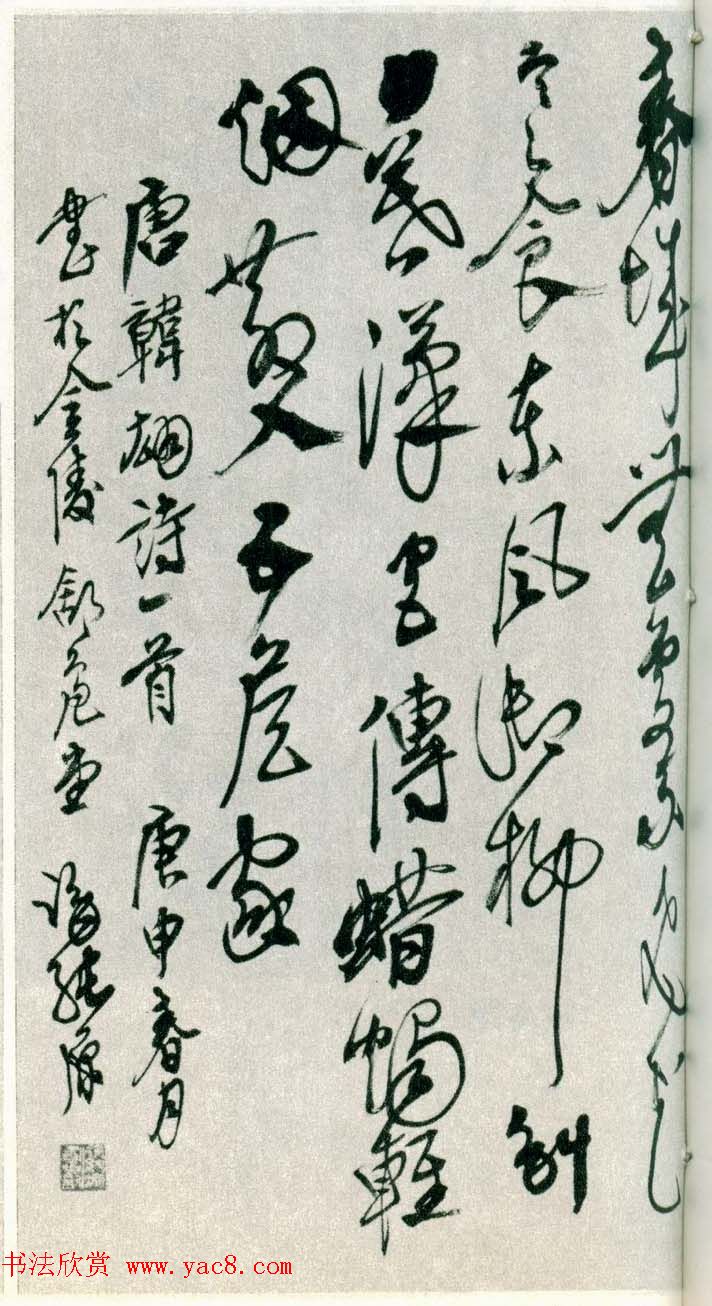 春城無處不飛花
寒食東風御柳斜
日暮漢宮傳蜡燭輕
烟散入五侯家
唐韓翃詩一首 庚申春月
書於金陵
书法欣赏 www.yac8.com